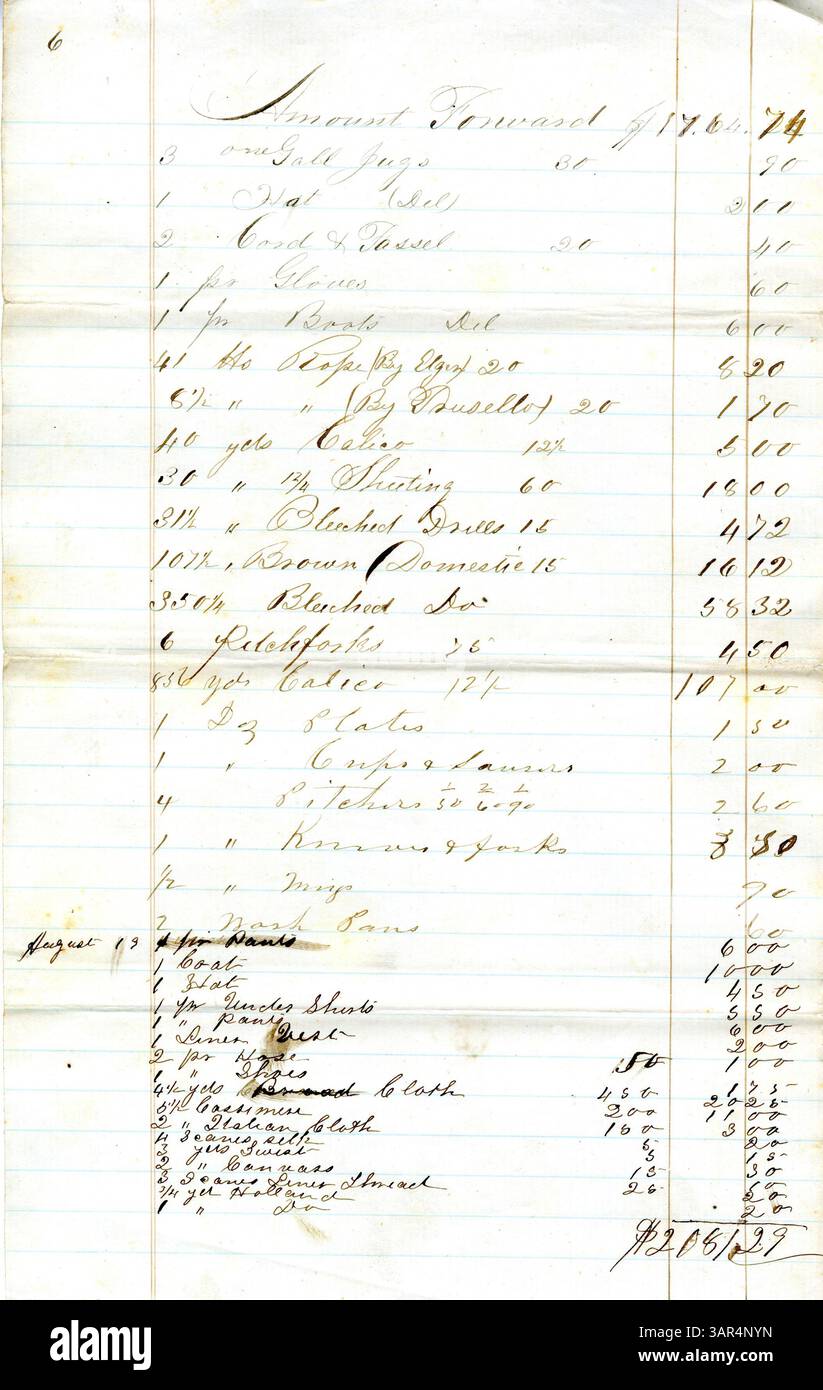 6
Amount Forward $17.64.74
3 one Gall Jugs 30 90
1 Hat (Del) 200
2 Cord & Tassel 20 40
1 pr Gloves 60
1 pr Boots Del 600
41 lbs Rope (By Elgin) 20 8 20
8 1/2 " " (By Trusello) 20 1 70
40 yds Calico 12 1/2 5 00
30 " 12/4 Sheeting 60 18 00
31 1/2 " Bleeched Drills 15 4 72
107 1/2 " Brown Domestic 15 16 12
350 1/4 Bleeched Do 58 32
6 Pitchforks 75 4 50
856 yds Calico 12 1/2 107 00
1 Doz Plates 1 50
1 " Cups & Saucers 2 00
4 Pitchers 1/50 2/60 1/90 2 60
1 " Knives & forks
1/2 " Mugs 90
2 Wash Pans 60
August 19 1 pr Pants 6 00
1 Coat 10 00
1 Hat 4 50
1 pr Under Shirts 5 50
1 " pants 6 00
1 Linen Vest 2 00
2 pr Hose 50 1 00
1 " Shoes 1 75
4 1/2 yds Broad Cloth 450 20 25
5 1/2 Cassimere 200 11 00
2 " Italian Cloth 150 3 00
4 Scanes silk 5 20
3 yds Twist 5 15
2 " Canvass 15 30
3 Scanes Linen Thread 10
3/4 yd Holland 25 20
1 " Do 20
$2081.29
alamy
Image ID: 3AR4NYN
www.alamy.com